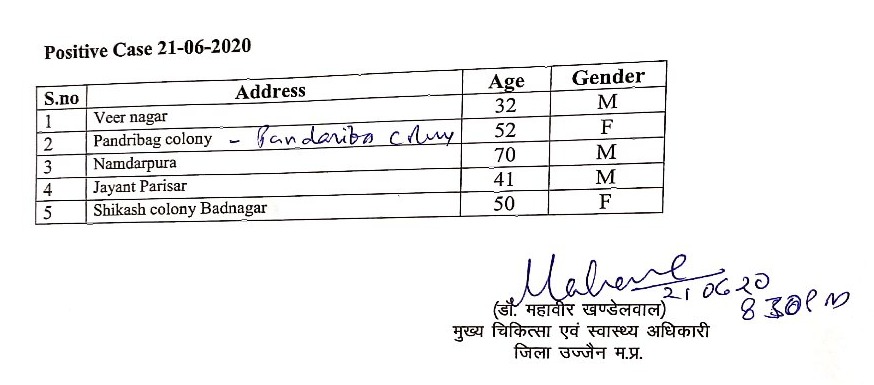 Positive Case 21-06-2020
S.no Address Age Gender
1 Veer nagar 32 M
2 Pandribag colony - Pandariba colony 52 F
3 Namdarpura 70 M
4 Jayant Parisar 41 M
5 Shikash colony Badnagar 50 F
21 06 20
8 30 PM
(डॉ. महावीर खण्डेलवाल)
मुख्य चिकित्सा एवं स्वास्थ्य अधिकारी
जिला उज्जैन म.प्र.